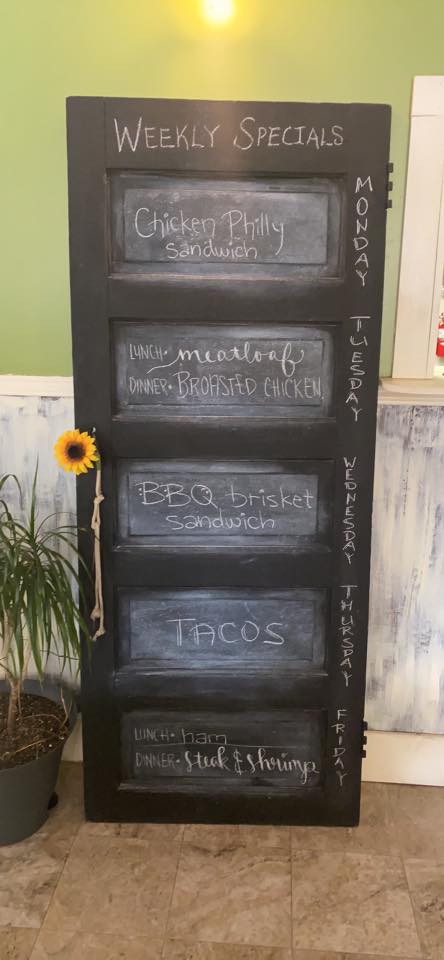 WEEKLY SPECIALS
Chicken Philly
sandwich
MONDAY
LUNCH• meatloaf
DINNER• BROASTED CHICKEN
TUESDAY
BBQ brisket
sandwich
WEDNESDAY
TACOS
THURSDAY
LUNCH• ham
DINNER• steak & shrimp
FRIDAY